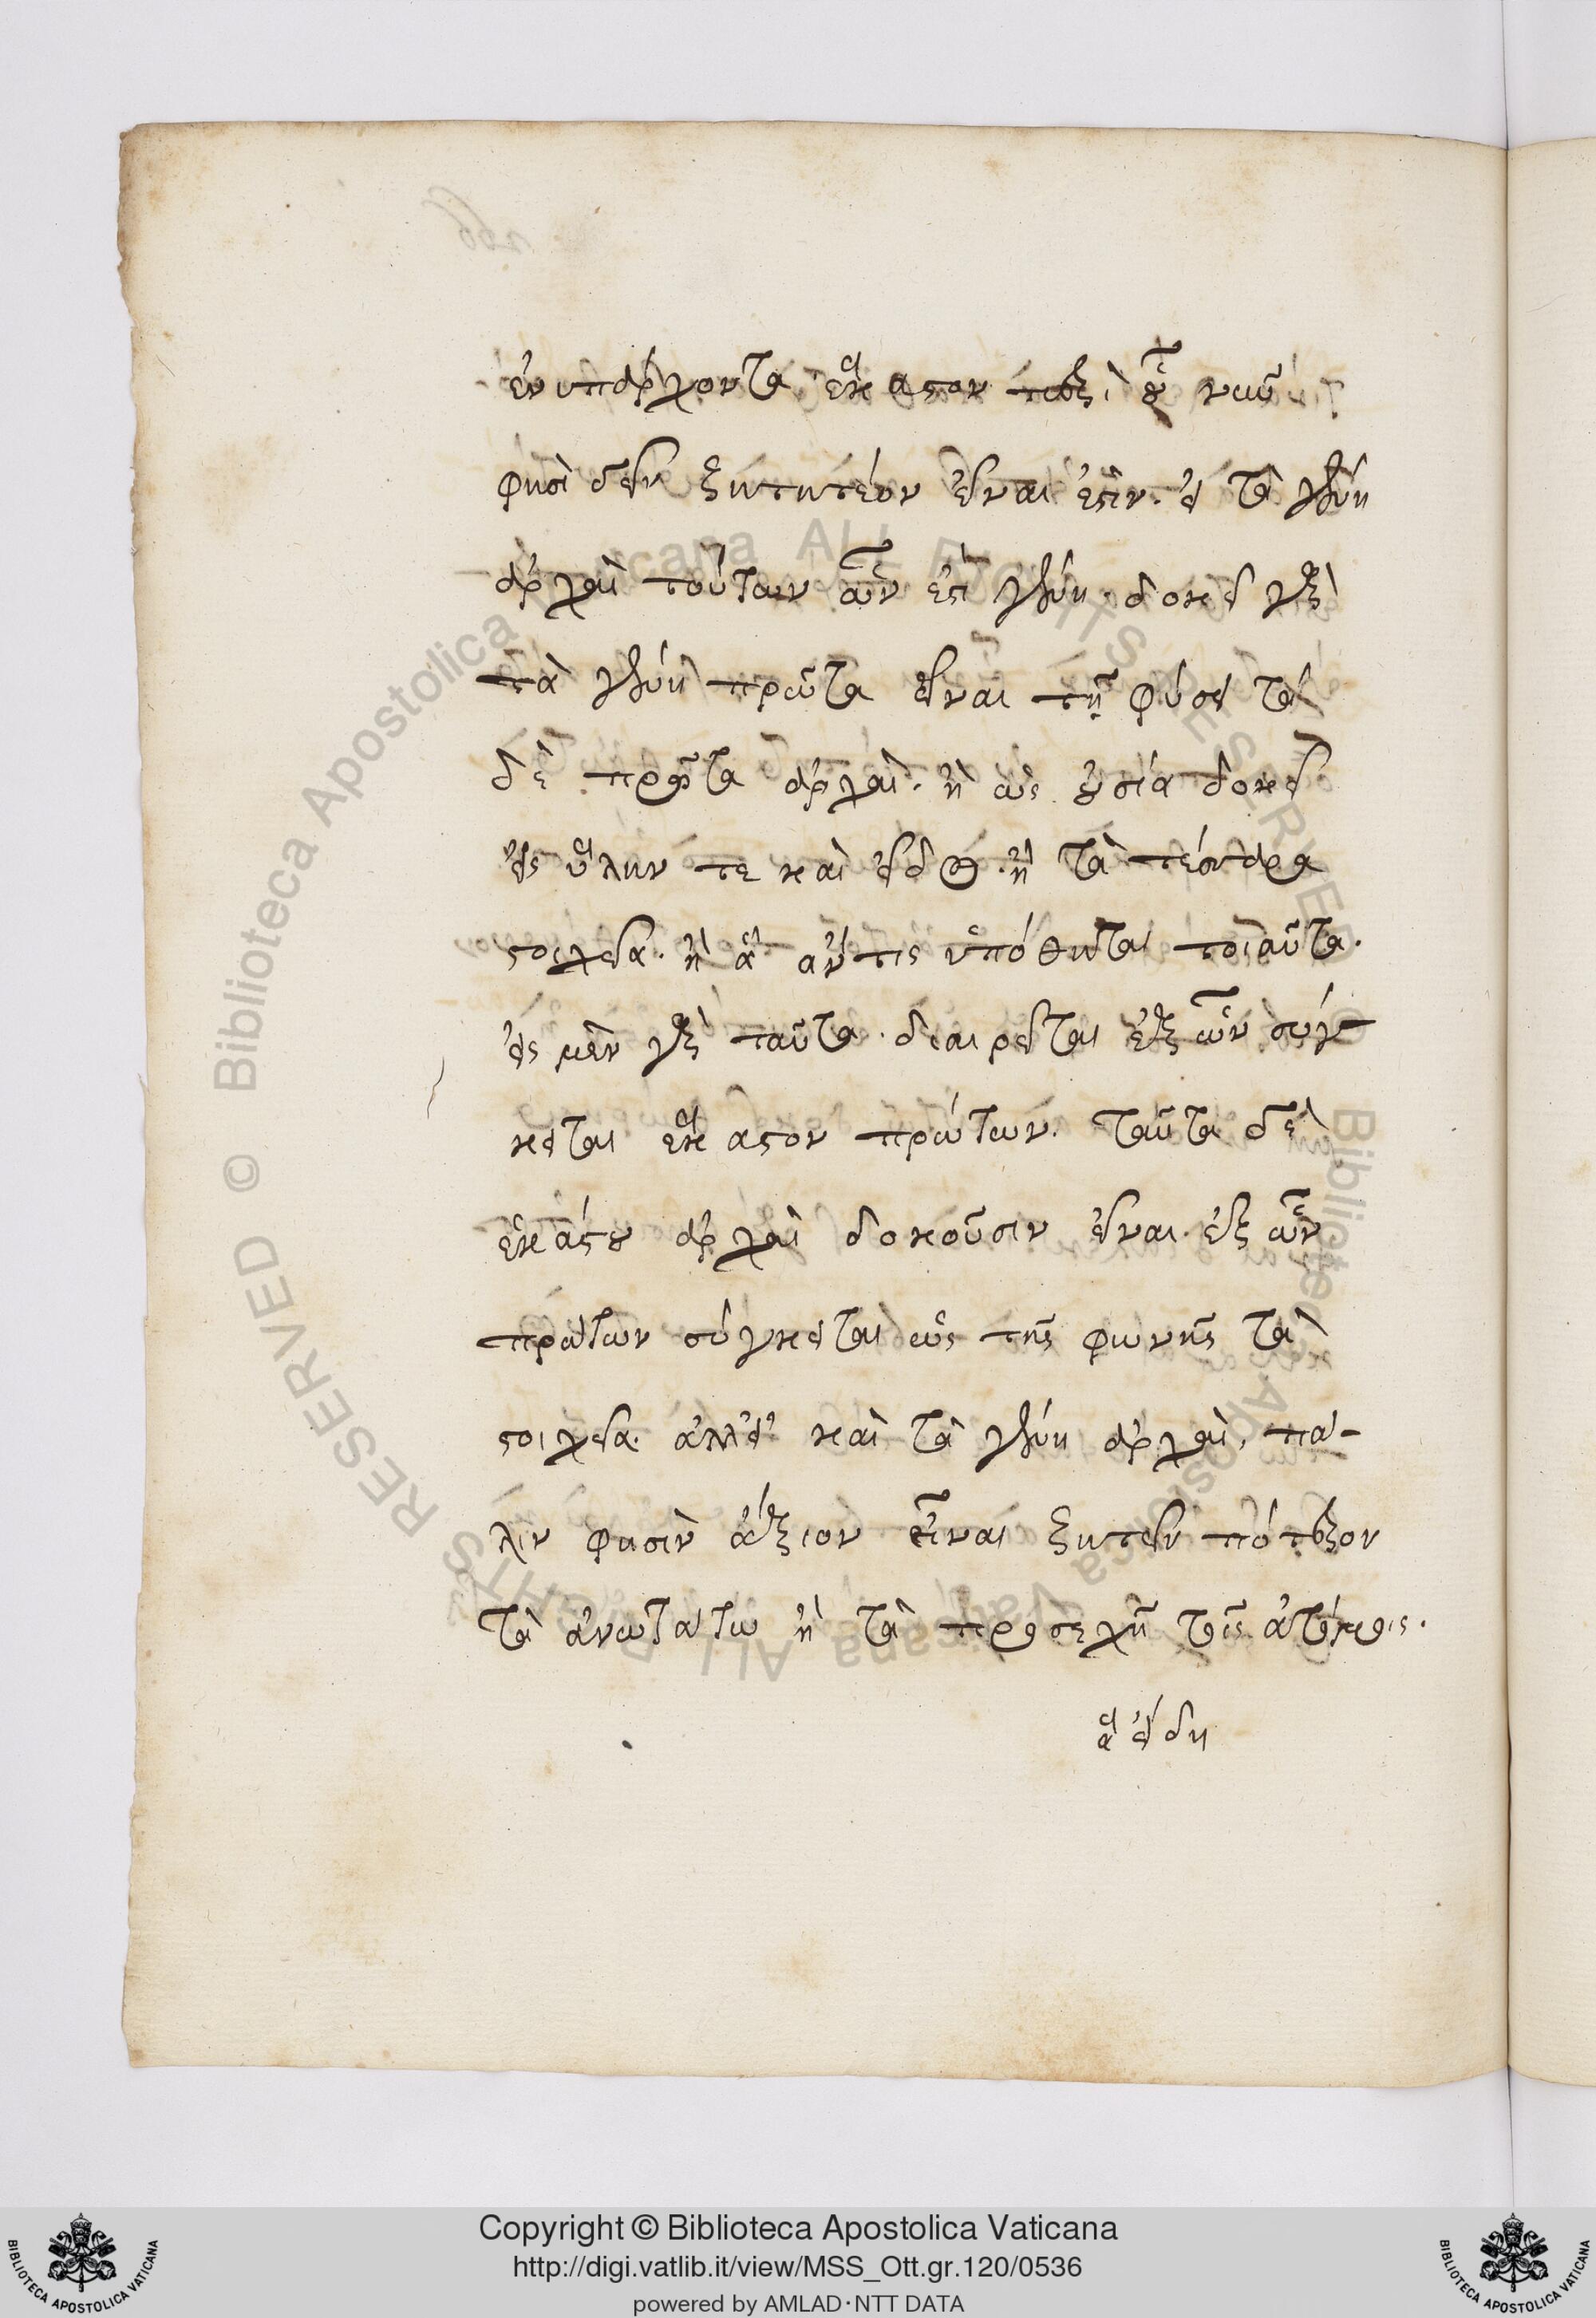 ἐνυπάρχοντα ἕκαστον περὶ οὗ νῦν
φησὶ δεῖν ζητητέον εἶναι ἐστὶν. εἰ τὰ γένη
ἀρχαὶ τούτων ὧν ἐστὶ γένη. δοκεῖ γὰρ
τὰ γένη πρῶτα εἶναι τῇ φύσει τὰ
δὲ πρῶτα ἀρχαὶ. ἢ ὡς οὐσία δοκεῖ
εἰς ὕλην τε καὶ εἶδος. ἢ τὰ τέσσαρα
στοιχεῖα. ἢ ἃ ἄν τις ὑπόθηται τοιαῦτα.
εἰς μὲν γὰρ ταῦτα διαιρεῖται ἐξ ὧν σύγ
κειται ἕκαστον πρώτων. ταῦτα δὲ
ἑκάστου ἀρχαὶ δοκοῦσιν εἶναι. ἐξ ὧν
πρώτων σύγκειται ὡς τῆς φωνῆς τὰ
στοιχεῖα. ἀλλ' εἰ καὶ τὰ γένη ἀρχαὶ, πά-
λιν φησὶν ἄξιον εἶναι ζητεῖν πότερον
τὰ ἀνωτάτω ἢ τὰ προσεχῆ τοῖς ἀτόμοις.
ἃ εἴδη
Copyright © Biblioteca Apostolica Vaticana
http://digi.vatlib.it/view/MSS_Ott.gr.120/0536
powered by AMLAD·NTT DATA
BIBLIOTECA APOSTOLICA VATICANA
BIBLIOTECA APOSTOLICA VATICANA